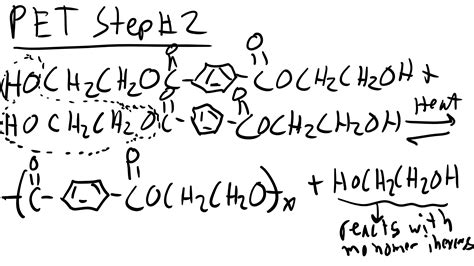 PET Step # 2
HOCH2CH2OC(=O)-⌬-C(=O)OCH2CH2OH +
HOCH2CH2OC(=O)-⌬-COCH2CH2OH Heat ⇌
(C(=O)-⌬-C(=O)O(CH2CH2O)x + HOCH2CH2OH
reacts with
monomer